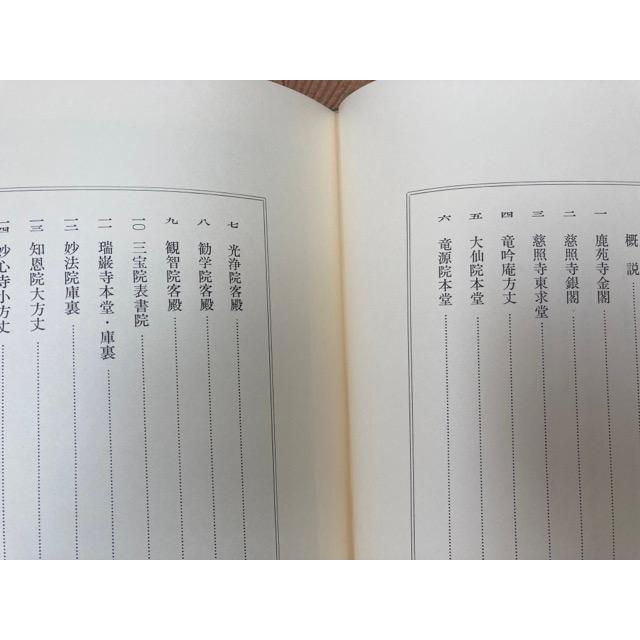 概説
一 鹿苑寺金閣
二 慈照寺銀閣
三 慈照寺東求堂
四 竜吟庵方丈
五 大仙院本堂
六 竜源院本堂
七 光浄院客殿
八 勧学院客殿
九 観智院客殿
一〇 三宝院表書院
一一 瑞巌寺本堂・庫裏
一二 妙法院庫裏
一三 知恩院大方丈
一四 妙心寺小方丈